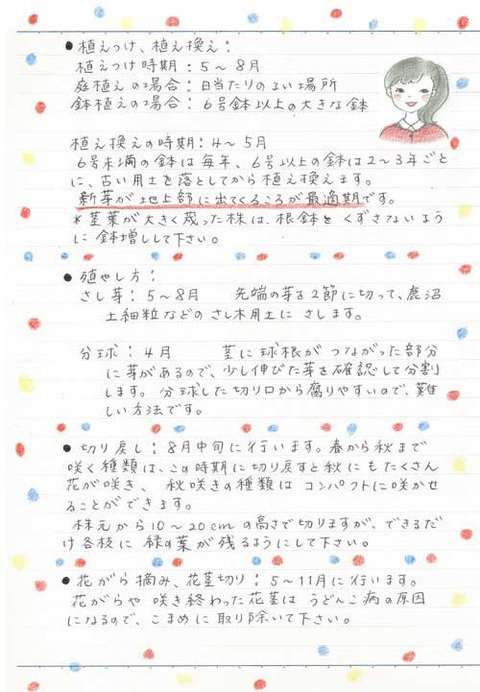 ● 植えつけ、植え換え：
植えつけ時期：5～8月
庭植えの場合：日当たりのよい場所
鉢植えの場合：6号鉢以上の大きな鉢
植え換えの時期：4～5月
6号未満の鉢は毎年、6号以上の鉢は2～3年ごと
に、古い用土を落としてから植え換えます。
新芽が地上部に出てくるころが最適期です。
*茎葉が大きく茂った株は、根鉢をくずさないよう
に鉢増しして下さい。
● 殖やし方：
さし芽：5～8月 先端の芽を2節に切って、鹿沼
土細粒などのさし木用土にさします。
分球：4月 茎に球根がつながった部分
に芽があるので、少し伸びた芽を確認して分割
します。分球した切り口から腐りやすいので、難
しい方法です。
● 切り戻し：8月中旬に行います。春から秋まで
咲く種類は、この時期に切り戻すと秋にもたくさん
花が咲き、秋咲きの種類はコンパクトに咲かせ
ることができます。
株元から10～20cmの高さで切りますが、できるだ
け各枝に緑の葉が残るようにして下さい。
● 花がら摘み、花茎切り：5～11月に行います。
花がらや咲き終わった花茎はうどんこ病の原因
になるので、こまめに取り除いて下さい。